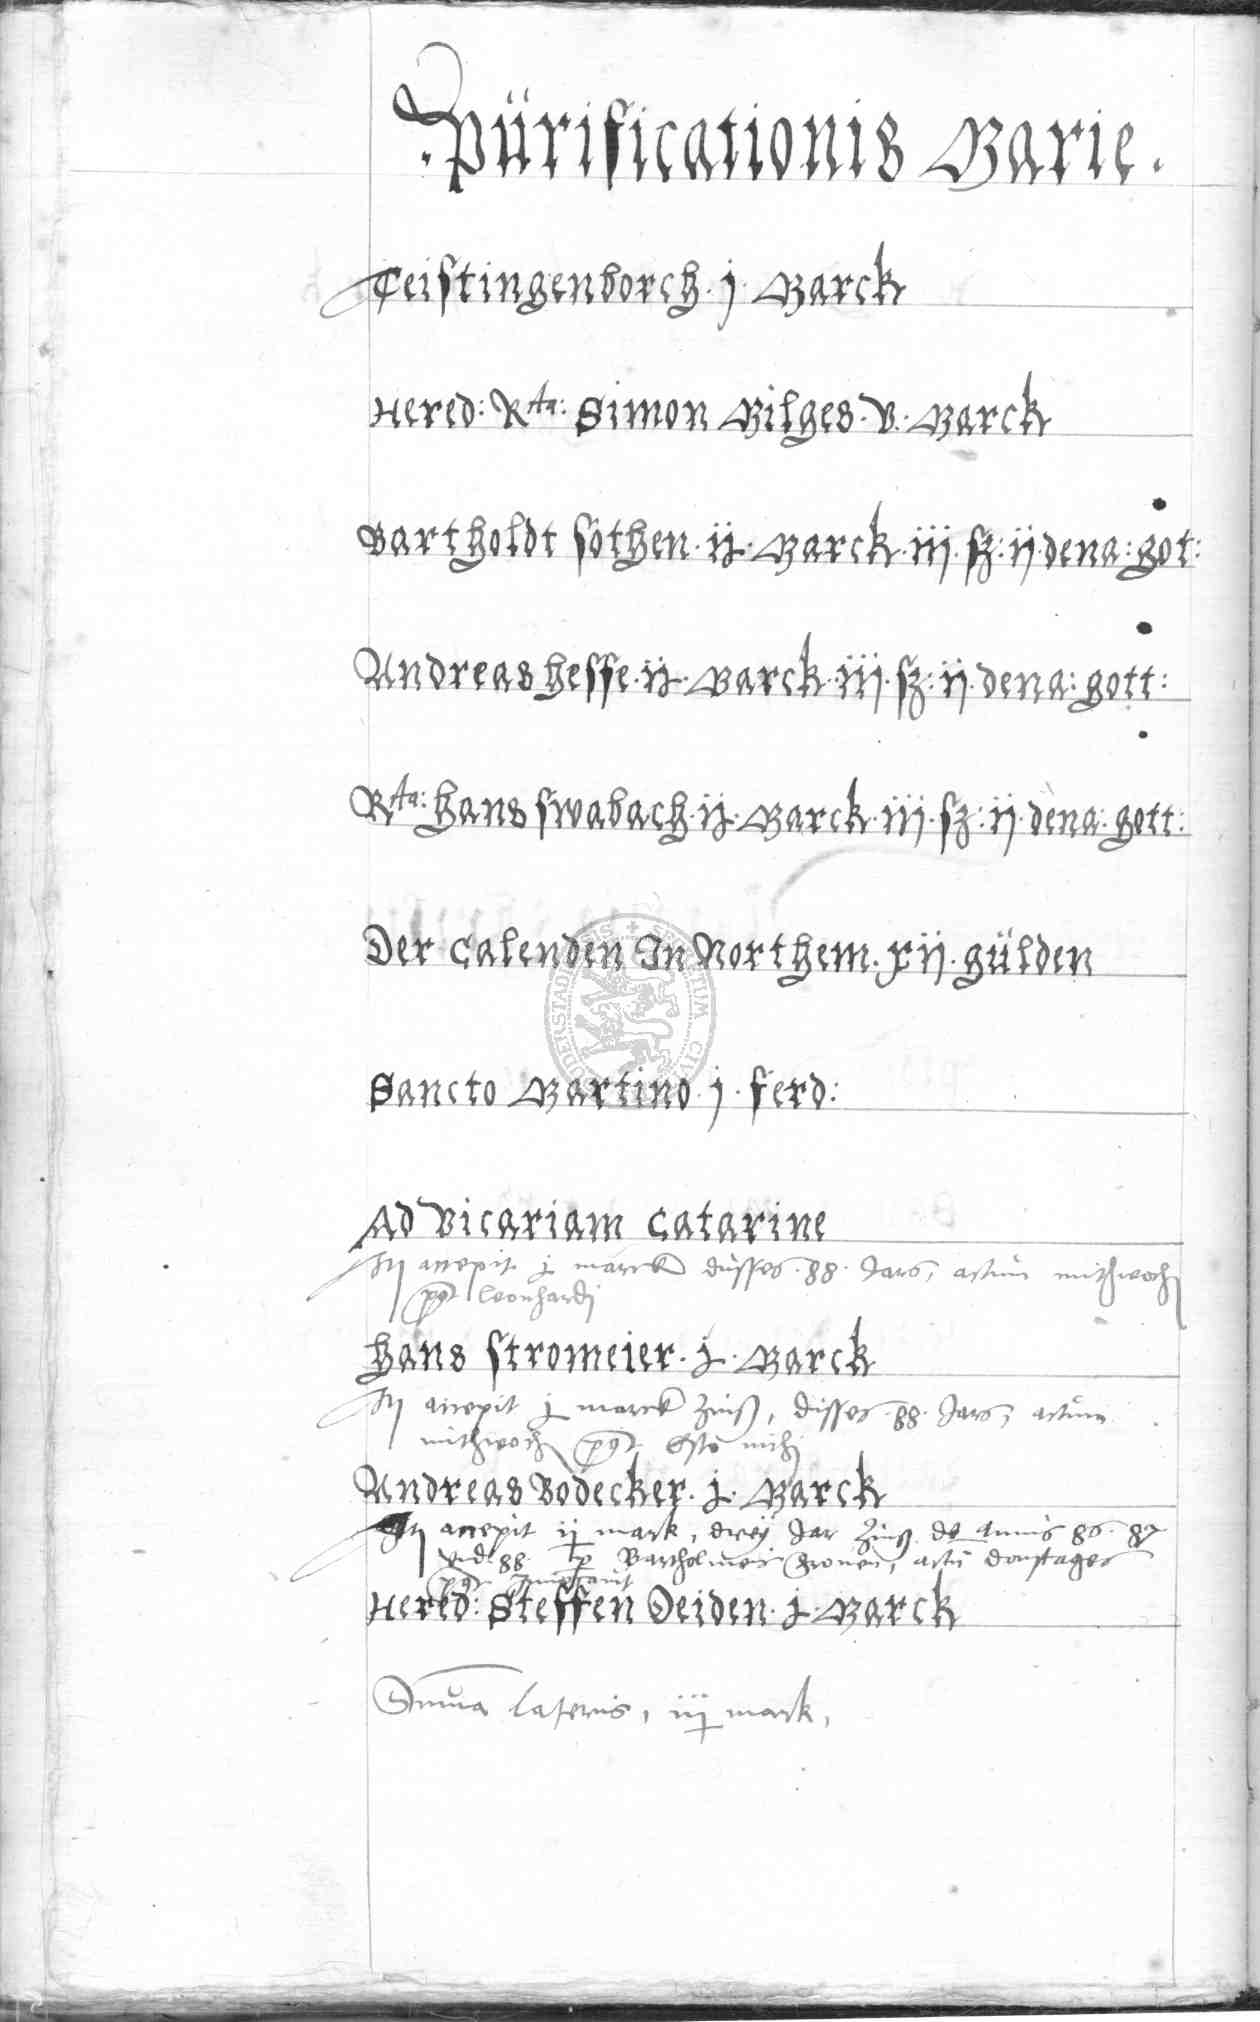 Pürificationis Marie.
Teistingenborch · j · Marck
Hered: Rta: Simon Hilges · v · Marck
Bartholdt sothen · ij · Marck · iij · sz: ij · dena: got:
Andreas hesse · ij · Marck · iij · sz: ij · dena: gott:
Rta: hans swabach · ij · Marck · iij · sz: ij · dena: gott:
Der Calenden In Northem · xij · gülden
Sancto Martino · j · ferd:
Ad vicariam Catarine
accepit j marck düsses · 88 · Jars, actum mithwoch
post leonhardj
hans stromeier · j · Marck
accepit j marck Zinß, disses · 88 · Jars, actum
mithwoch post Esto michj
Andreas Bodecker · j · Marck
accepit ij mark, drej Jar Zinß de Annis 86 · 87
vnd 88 · Bartholmeü actum donstages
post
Hered: Steffen Deiden · j · Marck
Summa lateris, iij mark,